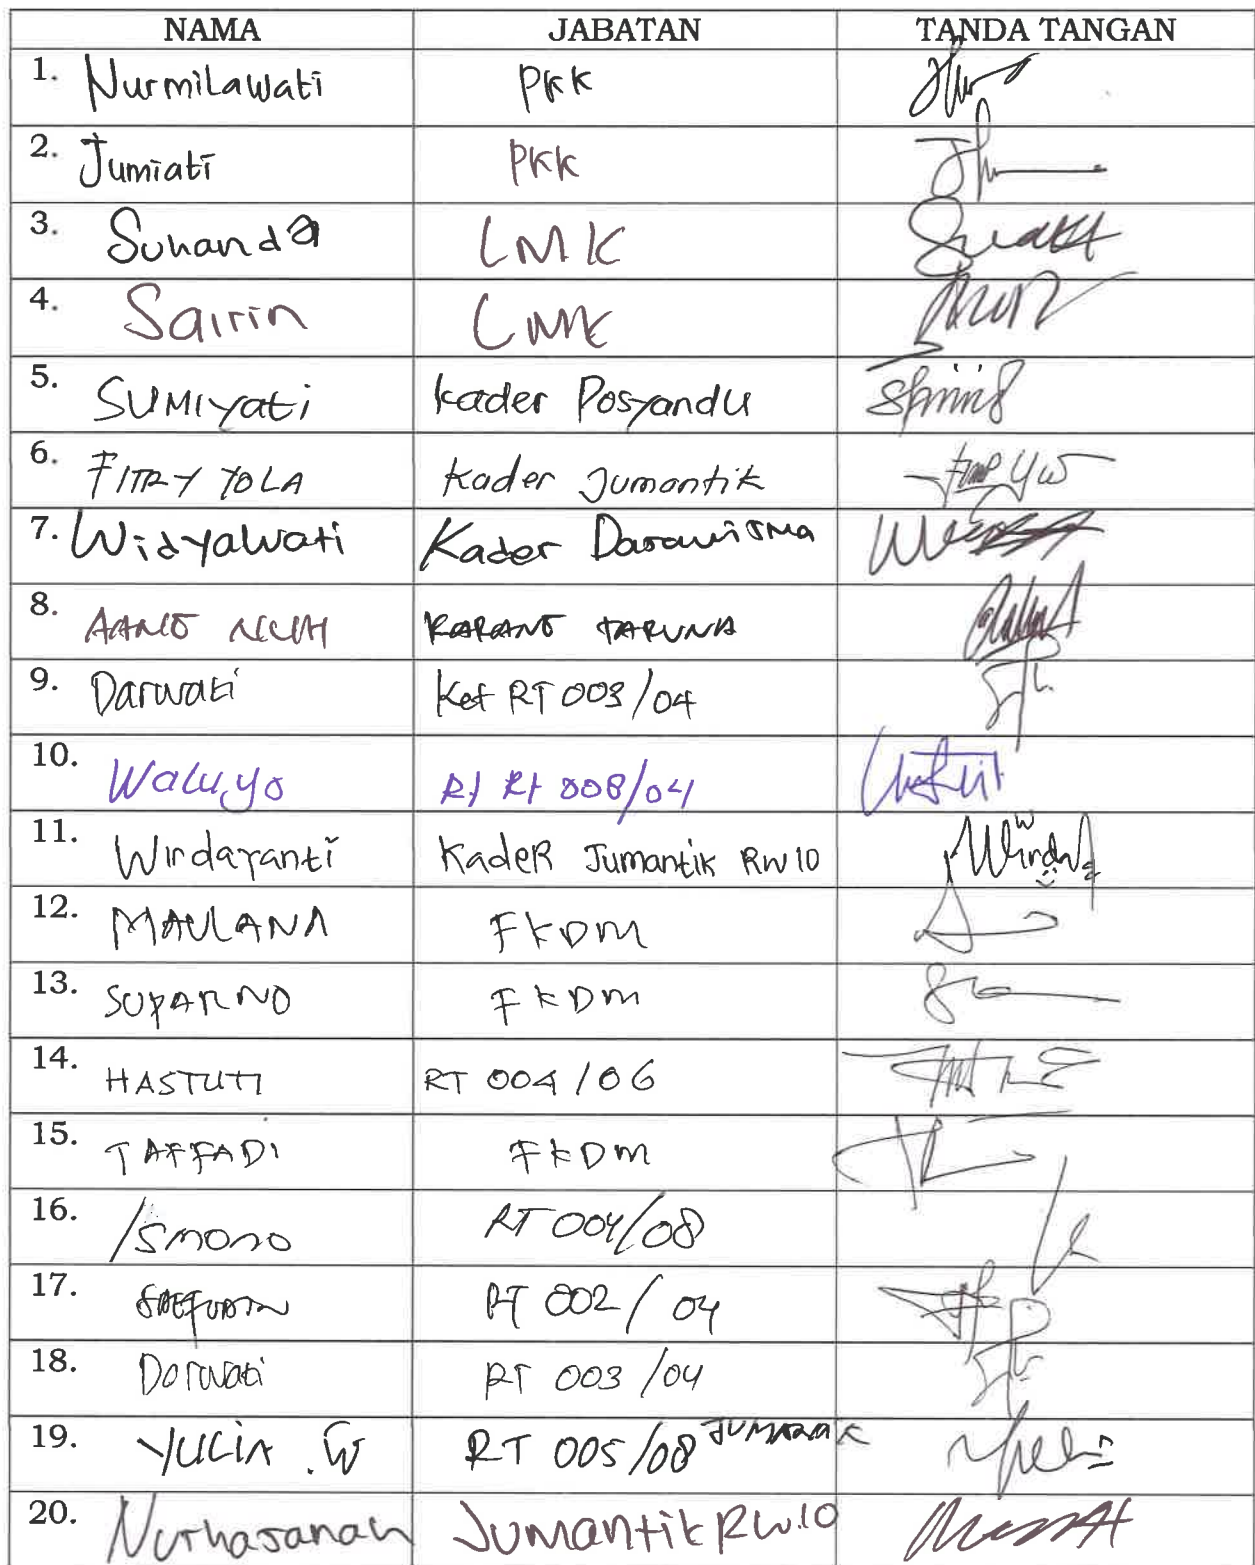 NAMA JABATAN TANDA TANGAN
1. Nurmilawati PKK
2. Jumiati PKK
3. Suhanda LMK
4. Sairin LMK
5. SUMIYati Kader Posyandu
6. FITRY YOLA Kader Jumantik
7. Widyawati Kader Dasawisma
8. AANG KARANG TARUNA
9. Darwati Ket RT 003/04
10. Waluyo Rt Rt 008/04
11. Wirdayanti KadeR Jumantik RW 10 Wirda
12. MAULANA FKDM
13. SUPARNO FKDM
14. HASTUTI RT 004/06
15. TAFFADI FKDM
16. Ismono RT 004/08
17. RT 002/04
18. Darwati RT 003/04
19. YULIA .W RT 005/08
20. Nurhasanah Jumantik RW.10